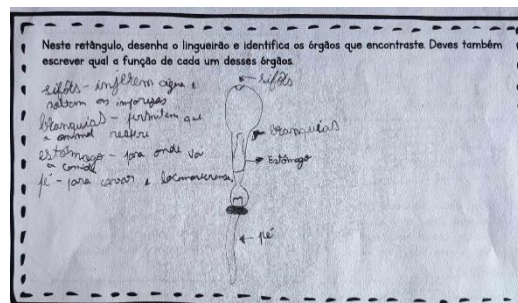 Neste retângulo, desenha o lingueirão e identifica os órgãos que encontraste. Deves também
escrever qual a função de cada um desses órgãos.
sifões - água e
soltam as
branquias - permitem que
o animal respire
estômago - para onde vai
a comida
pé - para cavar e
sifões
branquias
Estômago
pé